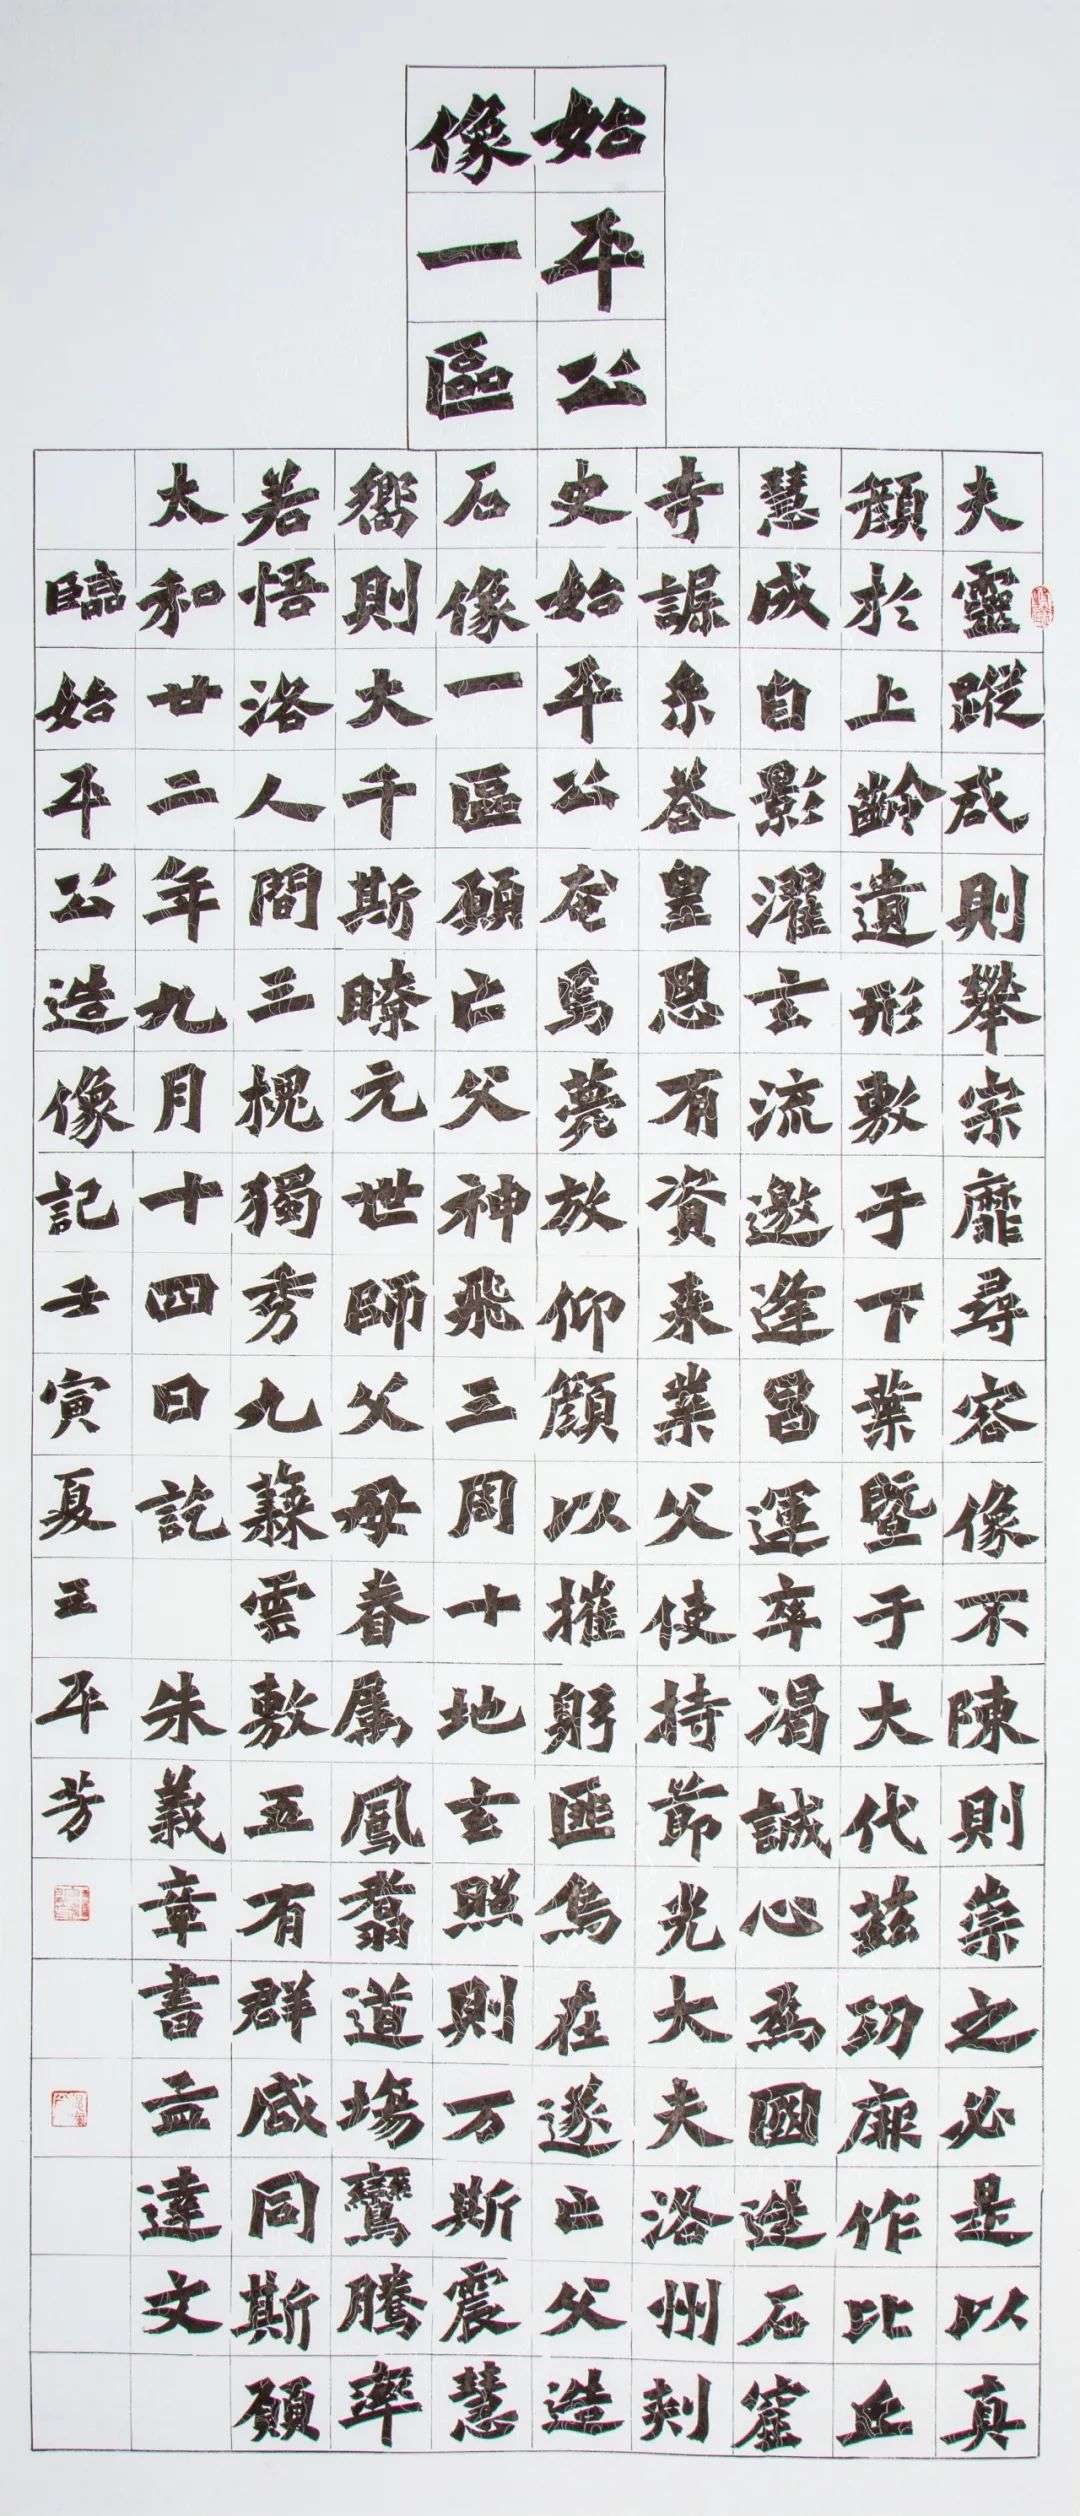 始平公
像一區
夫靈蹤启則攀宗靡尋容像不陳則崇之必是以真
顏於上齡遺形敷于下葉暨于大代茲功厥作比丘
慧成自影濯玄流邀逢昌運率渴誠心為國造石窟
寺係荅皇恩有資来業父使持節光大夫洛州刾
史始平公奄焉薨放仰顏以摧躬匪烏在遂亡父造
石像一區願亡父神飛三周十地玄照則万斯震慧
嚮則大千斯瞭元世師父母眷属鳳翥道場鸞騰率
若悟洛人間三槐獨秀九蕀雲敷五有群咸同斯願
太和廿二年九月十四日訖 朱義章書孟達文
臨始平公造像記壬寅夏王平芳